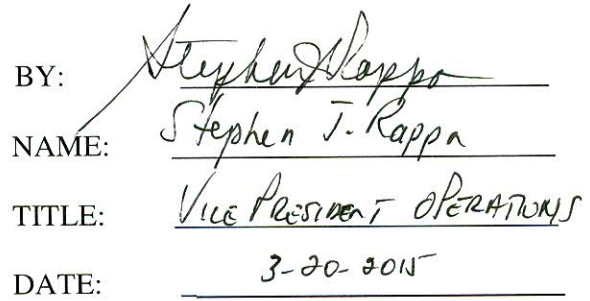 BY: Stephen J Rappa
NAME: Stephen J. Rappa
TITLE: VICE PRESIDENT OPERATIONS
DATE: 3-20-2015